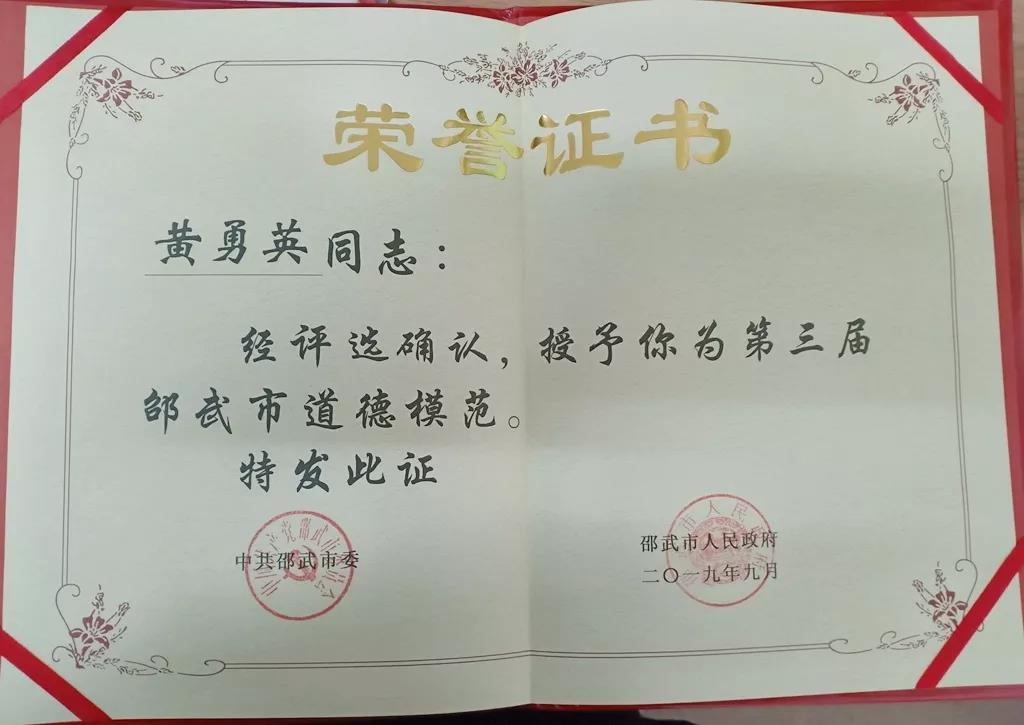 荣誉证书
黄勇英同志：
经评选确认，授予你为第三届
邵武市道德模范。
特发此证
中共邵武市委
邵武市人民政府
二〇一九年九月